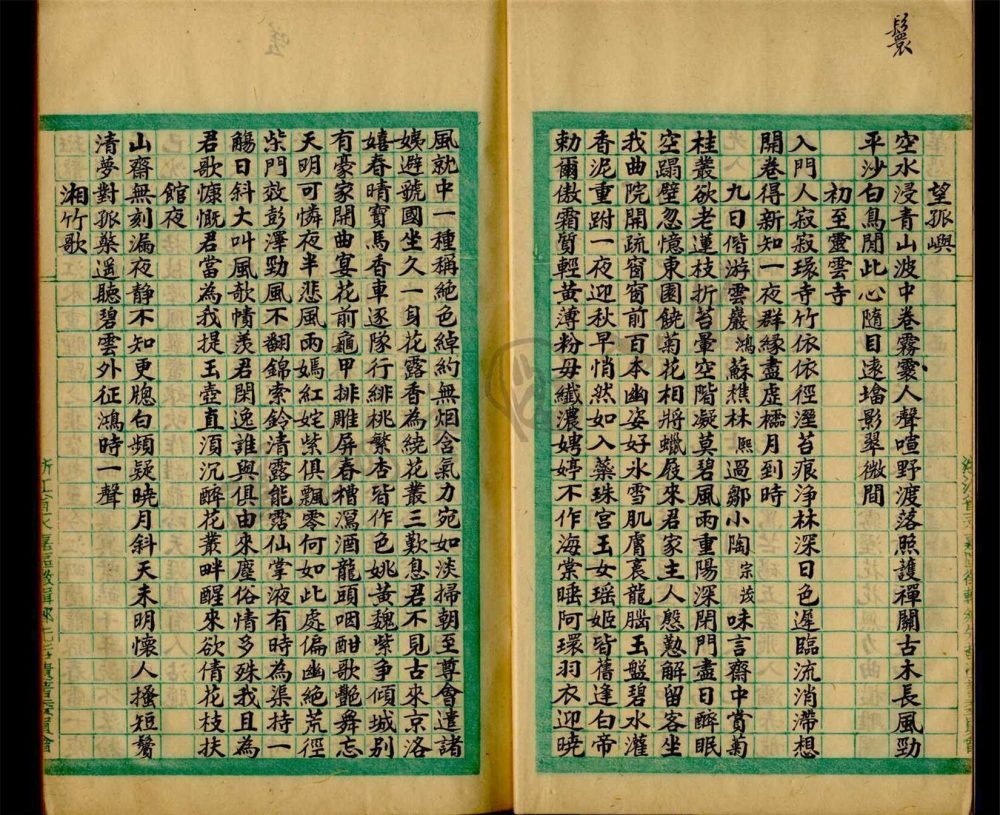 鬟
望孤嶼
空水浸青山波中卷霧鬟人聲喧野渡落照護禪關古木長風勁
平沙白鳥閒此心隨目遠墖影翠微間
初至靈雲寺
入門人寂寂環寺竹依依徑溼苔痕淨林深日色遲臨流消滯想
開卷得新知一夜群緣盡虛櫺月到時
九日偕游雲巖鴻蘇樵林熙過鄒小陶宗茂味言齋中賞菊
桂叢欲老蓮枝折苔暈空階凝莫碧風雨重陽深閉門盡日醉眠
空蹋壁忽憶東園饒菊花相將蠟屐來君家主人慇懃解留客坐
我曲院開疏窗窗前百本幽姿好氷雪肌膚裛龍腦玉盤碧水灌
香泥重跗一夜迎秋早悄然如入蘂珠宮玉女瑶姬皆舊逢白帝
勅爾傲霜質輕黃薄粉毋纖濃娉婷不作海棠睡阿環羽衣迎曉
風就中一種稱絕色綽約無烟含氣力宛如淡掃朝至尊會遣諸
姨避虢國坐久一身花露香為繞花叢三歎息君不見古來京洛
嬉春晴寶馬香車逐隊行緋桃繁杏皆作色姚黃魏紫爭傾城別
有豪家開曲宴花前龜甲排雕屏春槽瀉酒龍頭咽酣歌艷舞忘
天明可憐夜半悲風雨嫣紅姹紫俱飄零何如此處偏幽絕荒徑
柴門效彭澤勁風不翻錦索鈴清露能霑仙掌液有時為渠持一
觴日斜大叫風歌幘羨君閑逸誰與俱由來塵俗情多殊我且為
君歌慷慨君當為我提玉壺直須沉醉花叢畔醒來欲倩花枝扶
館夜
山齋無刻漏夜静不知更牕白頻疑曉月斜天未明懷人搔短鬢
清夢對孤檠遥聽碧雲外征鴻時一聲
湘竹歌